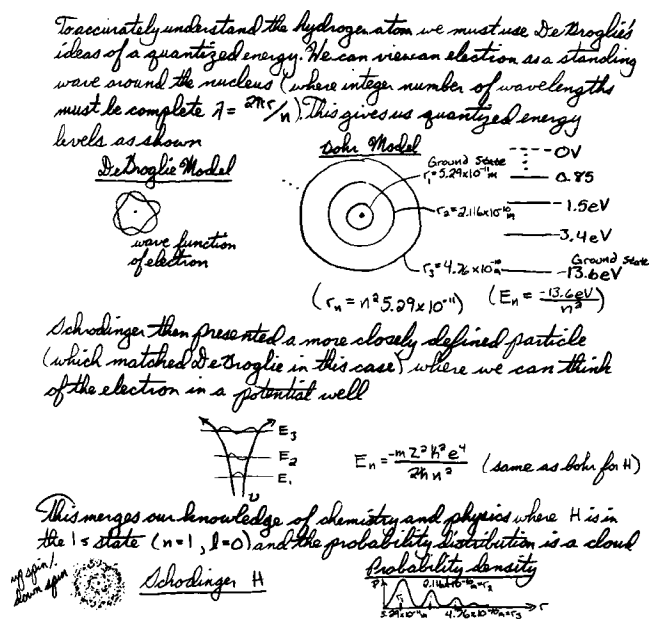 To accurately understand the hydrogen atom we must use DeBroglie's
ideas of a quantized energy. We can view an electron as a standing
wave around the nucleus (where integer number of wavelengths
must be complete λ = 2πr/n). This gives us quantized energy
levels as shown
DeBroglie Model
wave function
of electron
Bohr Model
Ground State
r₁ = 5.29x10⁻¹¹m
r₂ = 2.116x10⁻¹⁰m
r₃ = 4.76x10⁻¹⁰m
(rₙ = n² 5.29x10⁻¹¹)
0V
0.85
-1.5eV
-3.4eV
Ground State
-13.6eV
(Eₙ = -13.6eV/n²)
Schrodinger then presented a more closely defined particle
(which matched DeBroglie in this case) where we can think
of the electron in a potential well
E₃
E₂
E₁
υ
Eₙ = -mZ²k²e⁴/2ħn² (same as bohr for H)
This merges our knowledge of chemistry and physics where H is in
the 1s state (n=1, l=0) and the probability distribution is a cloud
up spin/
down spin
Schrodinger H
Probability density
P
r₁
2.116x10⁻¹⁰m=r₂
r
5.29x10⁻¹¹m
4.76x10⁻¹⁰m=r₃